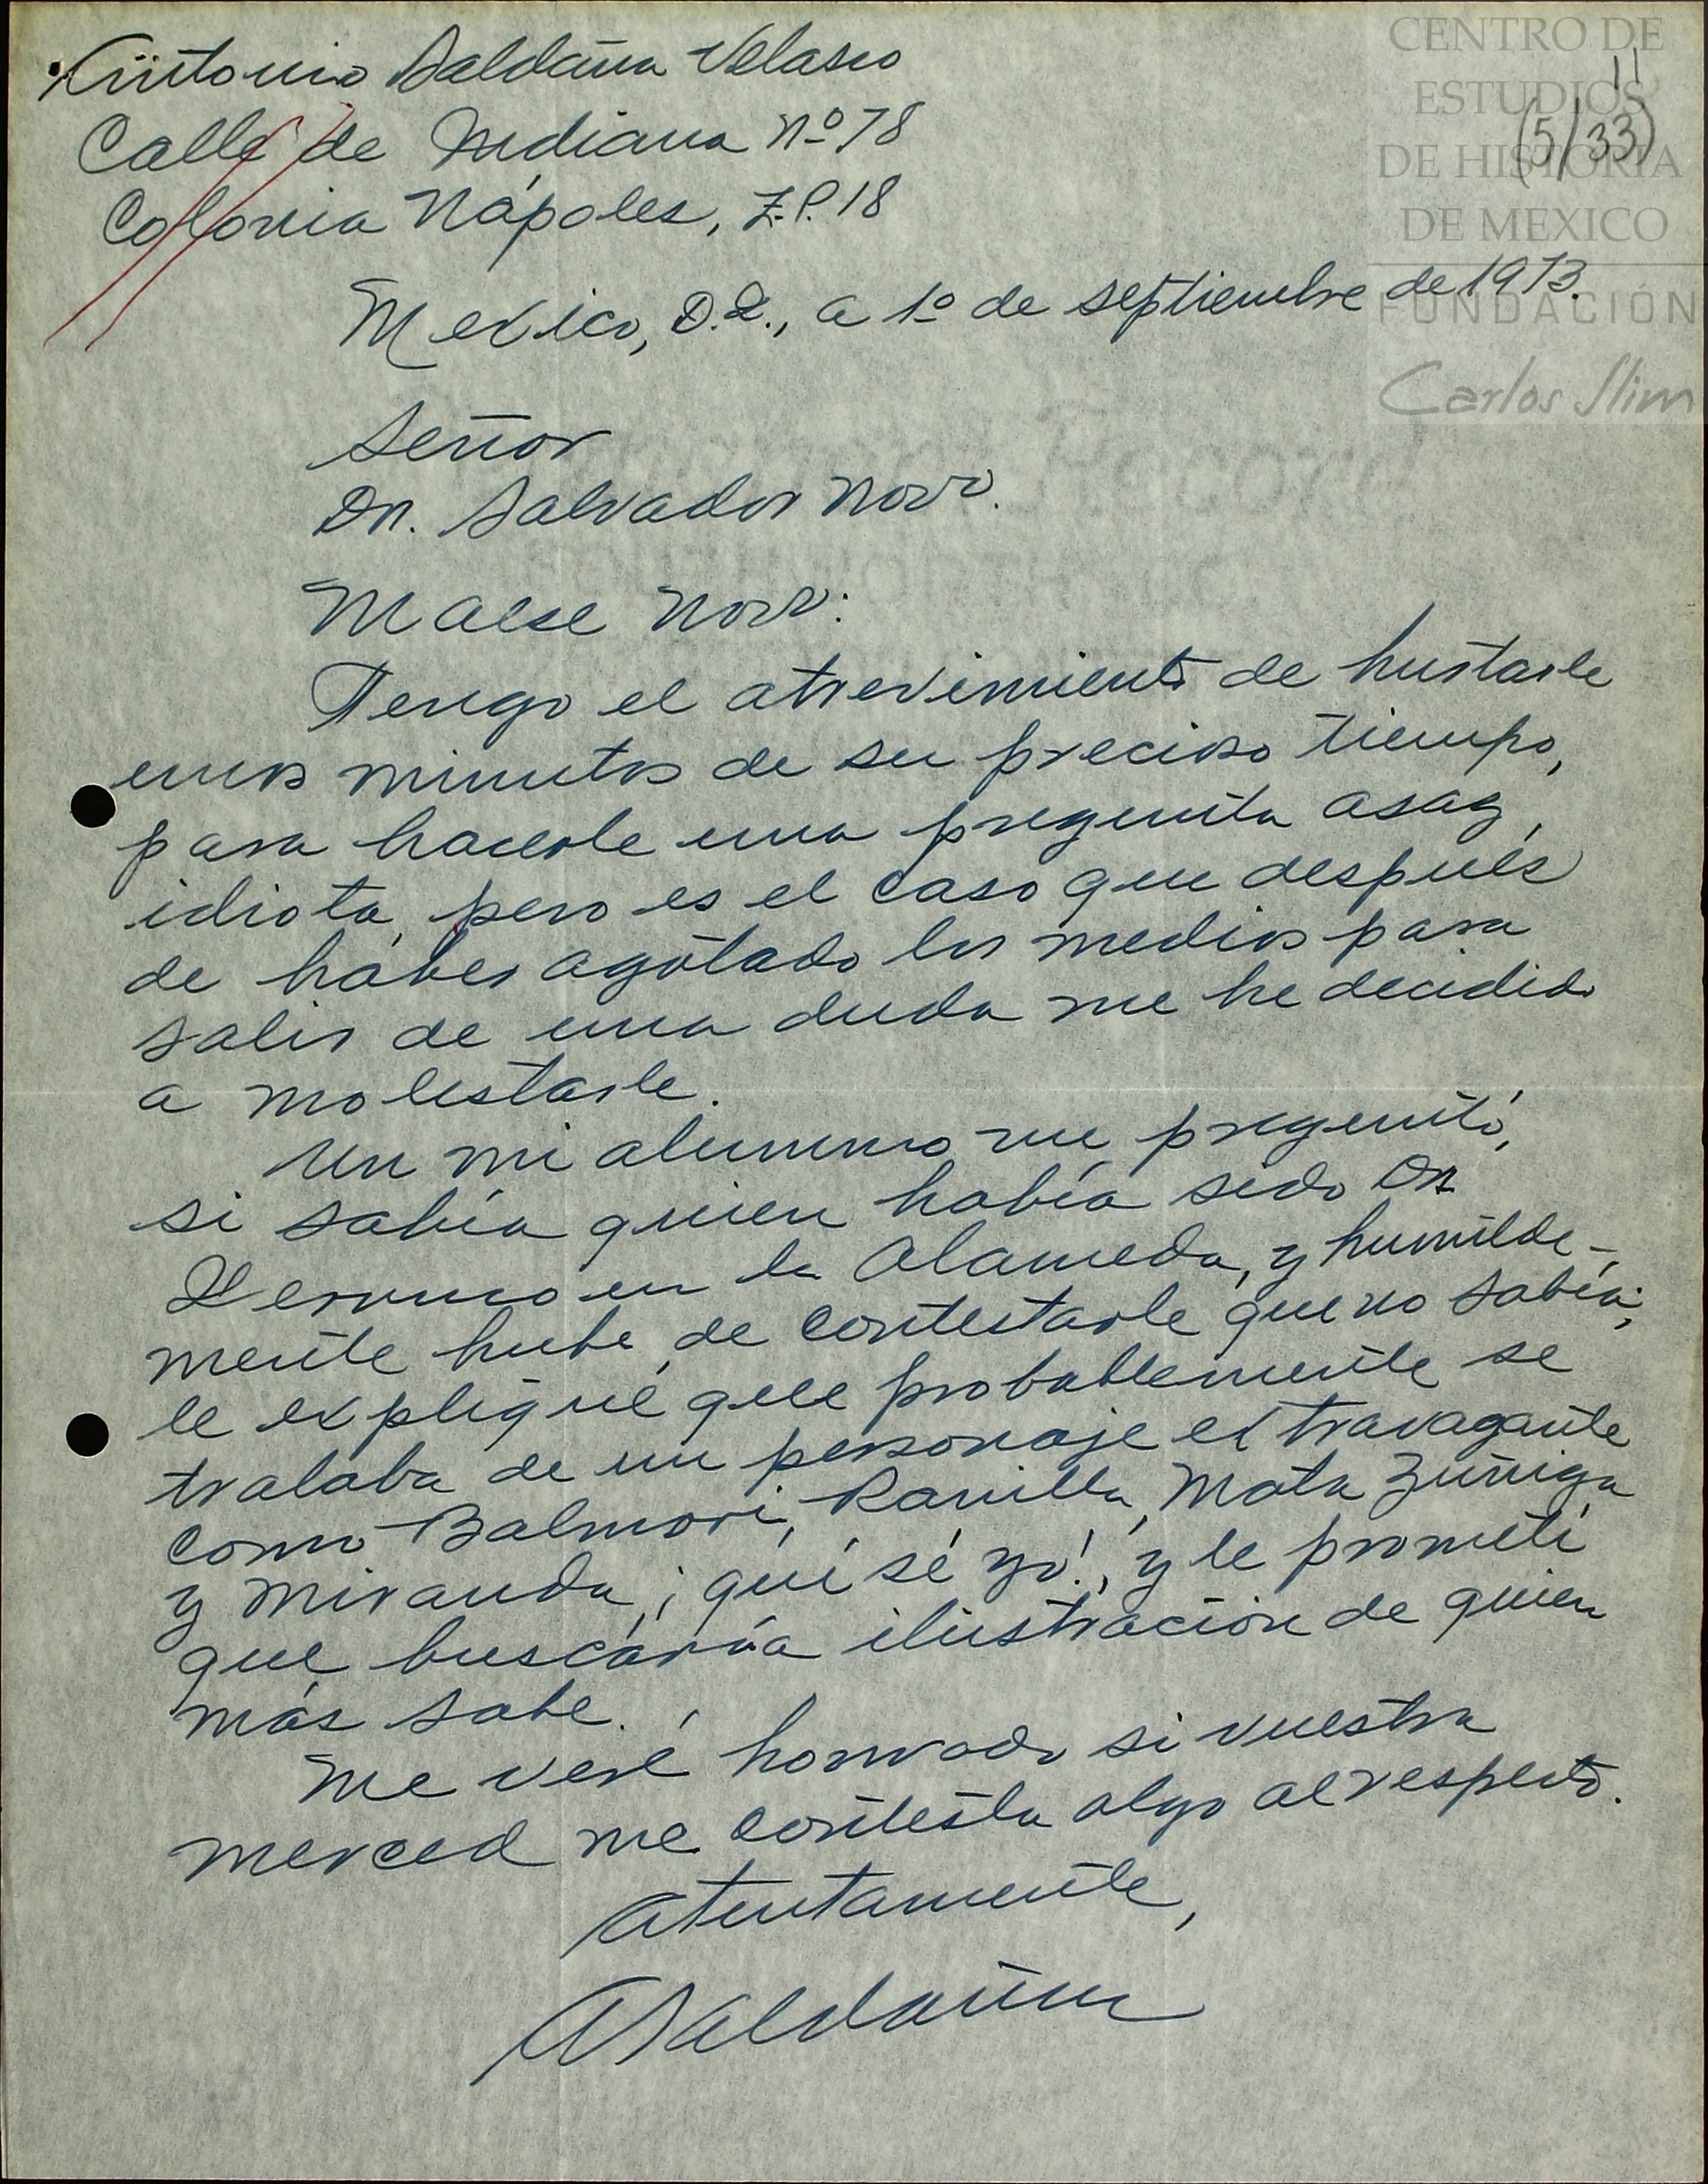 Antonio Saldaña Velasco
Calle de Indiana nº 78
Colonia Nápoles, Z.P. 18
CENTRO DE
ESTUDIOS
DE HISTORIA
DE MEXICO
FUNDACIÓN
Carlos Slim
11
(5/33)
Mexico, D.F., a 1º de septiembre de 1973.
Señor
Dn. Salvador Novo.
Maese Novo:
Tengo el atrevimiento de hurtarle
unos minutos de su precioso tiempo,
para hacerle una pregunta asaz
idiota, pero es el caso que después
de haber agotado los medios para
salir de una duda me he decidido
a molestarle.
Un mi alumno me preguntó,
si sabía quien había sido Dn
en la Alameda, y humilde-
mente hube de contestarle que no sabía;
le expliqué que probablemente se
trataba de un personaje extravagante
como Balmori, Ranilla, Mata Zúñiga
y Miranda, ¡qué sé yo!, y le prometí
que buscaría ilustración de quien
más sabe.
Me veré honrado si vuestra
merced me contesta algo al respecto.
Atentamente,
ASaldaña